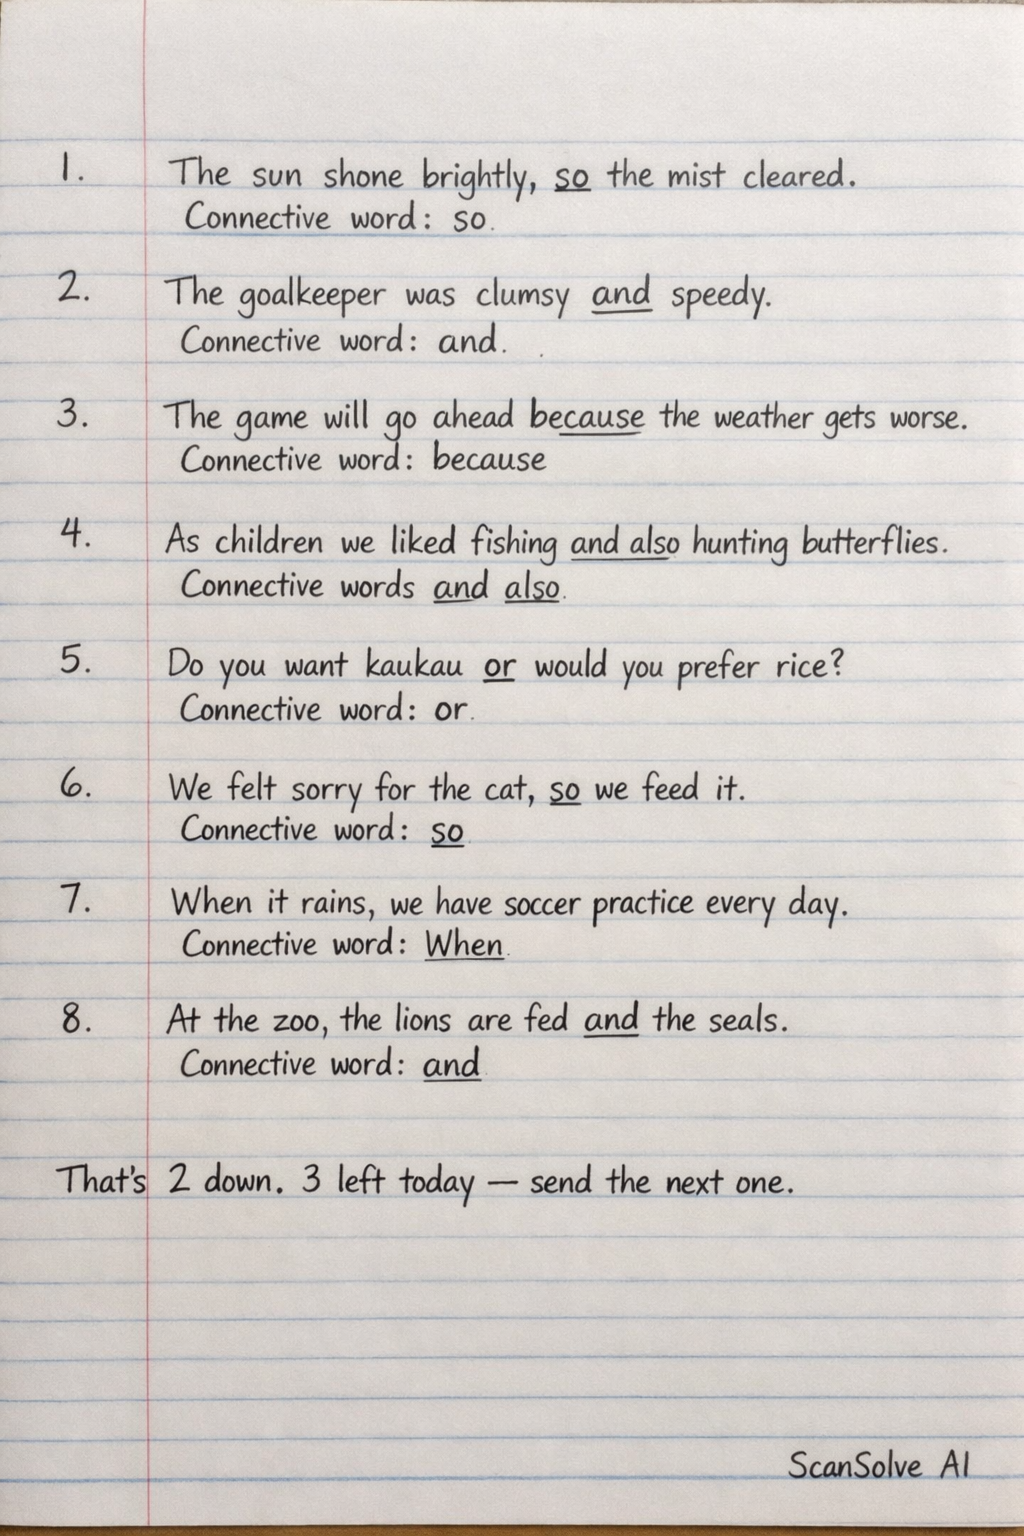 1. The sun shone brightly, so the mist cleared.
Connective word: so.
2. The goalkeeper was clumsy and speedy.
Connective word: and.
3. The game will go ahead because the weather gets worse.
Connective word: because
4. As children we liked fishing and also hunting butterflies.
Connective words and also.
5. Do you want kaukau or would you prefer rice?
Connective word: or.
6. We felt sorry for the cat, so we feed it.
Connective word: so
7. When it rains, we have soccer practice every day.
Connective word: When.
8. At the zoo, the lions are fed and the seals.
Connective word: and
That's 2 down. 3 left today — send the next one.
ScanSolve AI